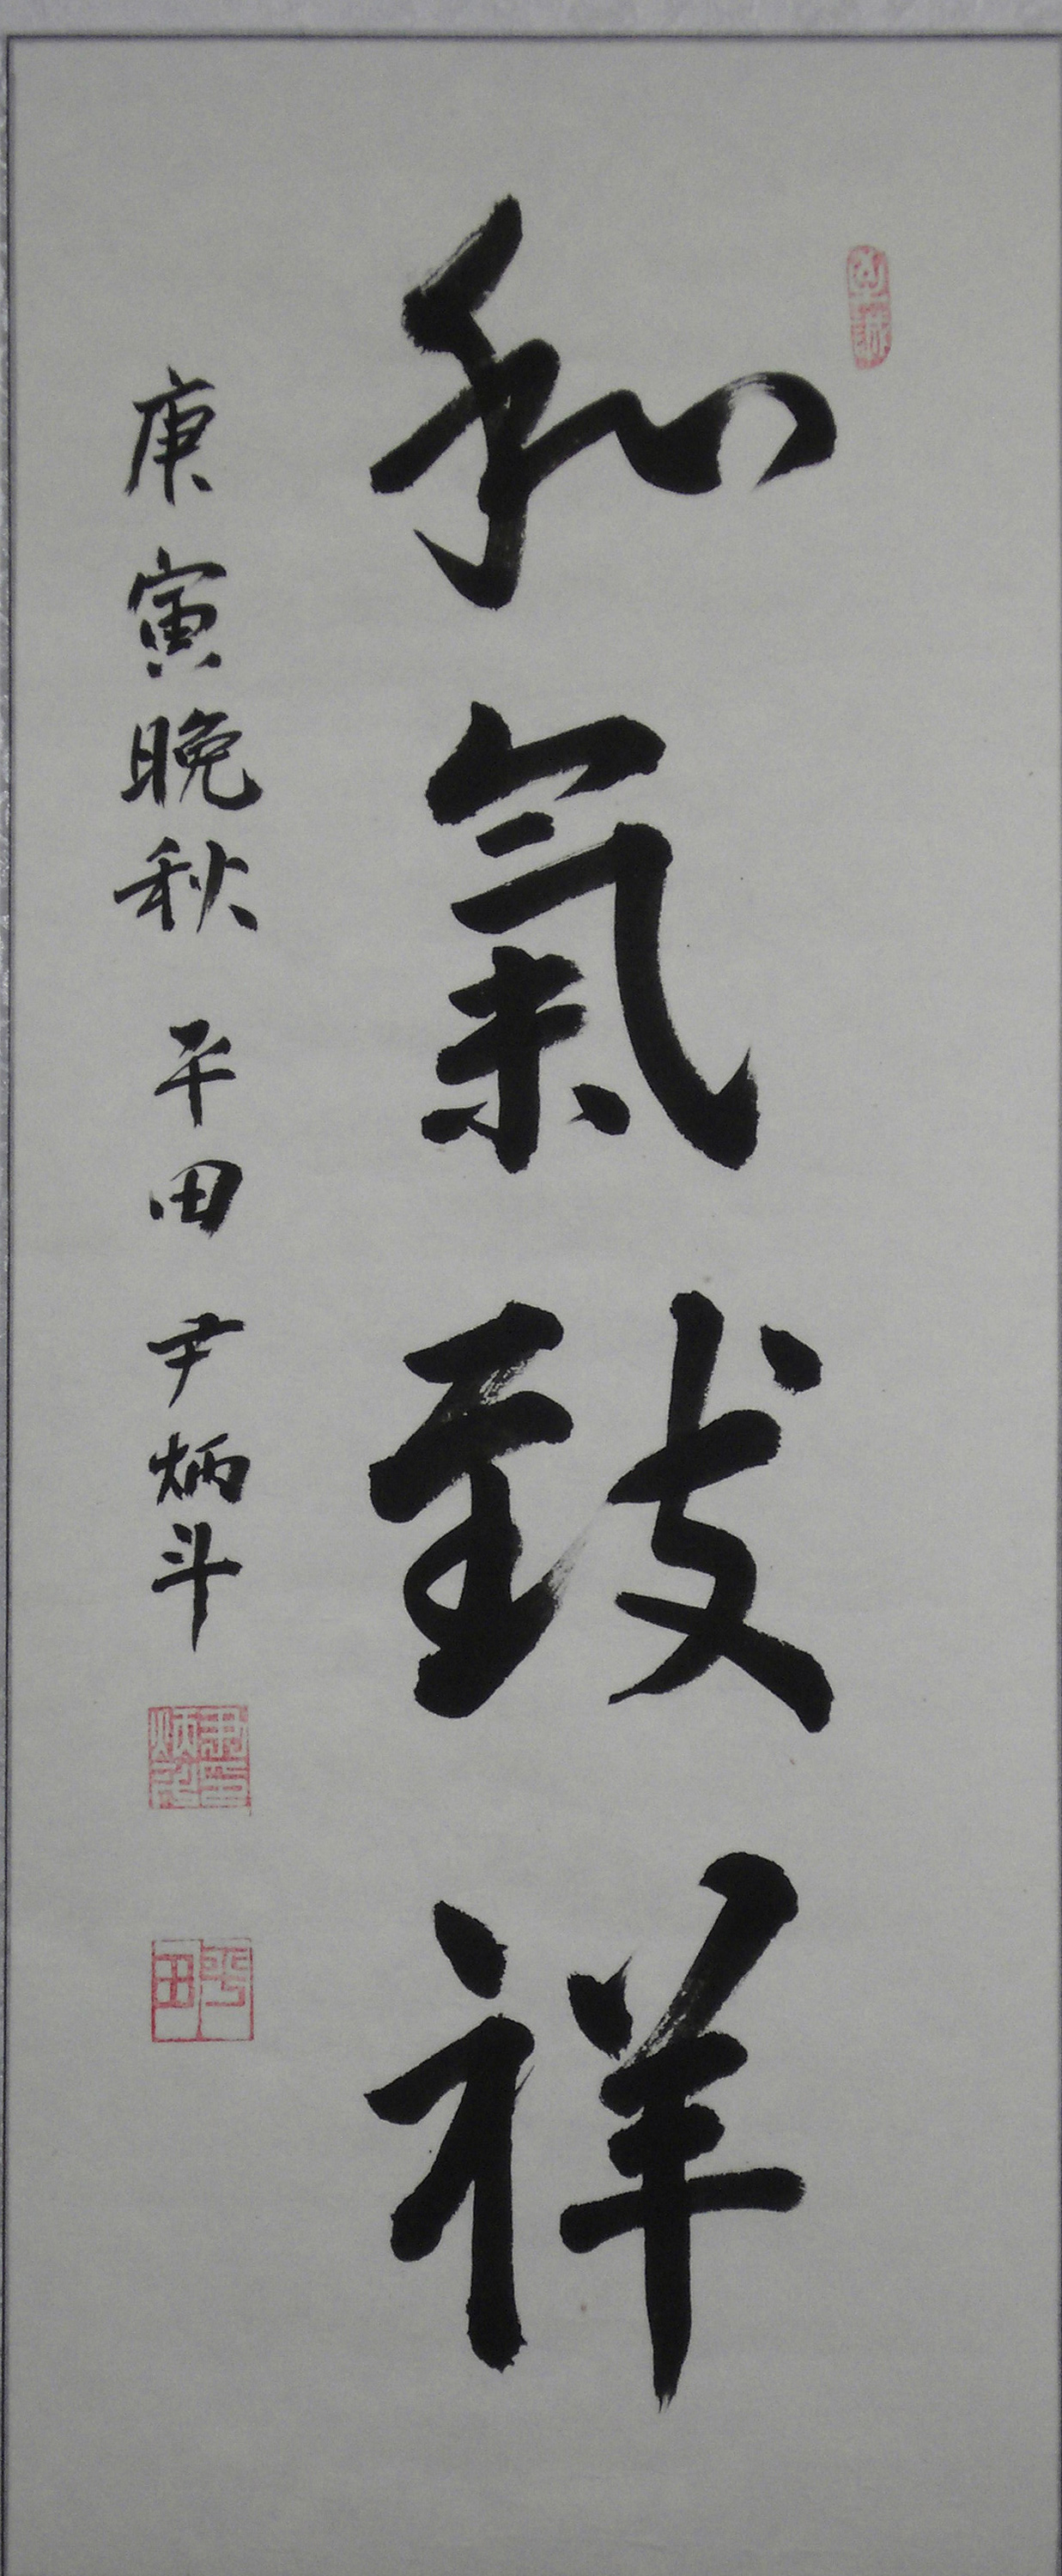 和氣致祥
庚寅晚秋 平田 尹炳斗
平田